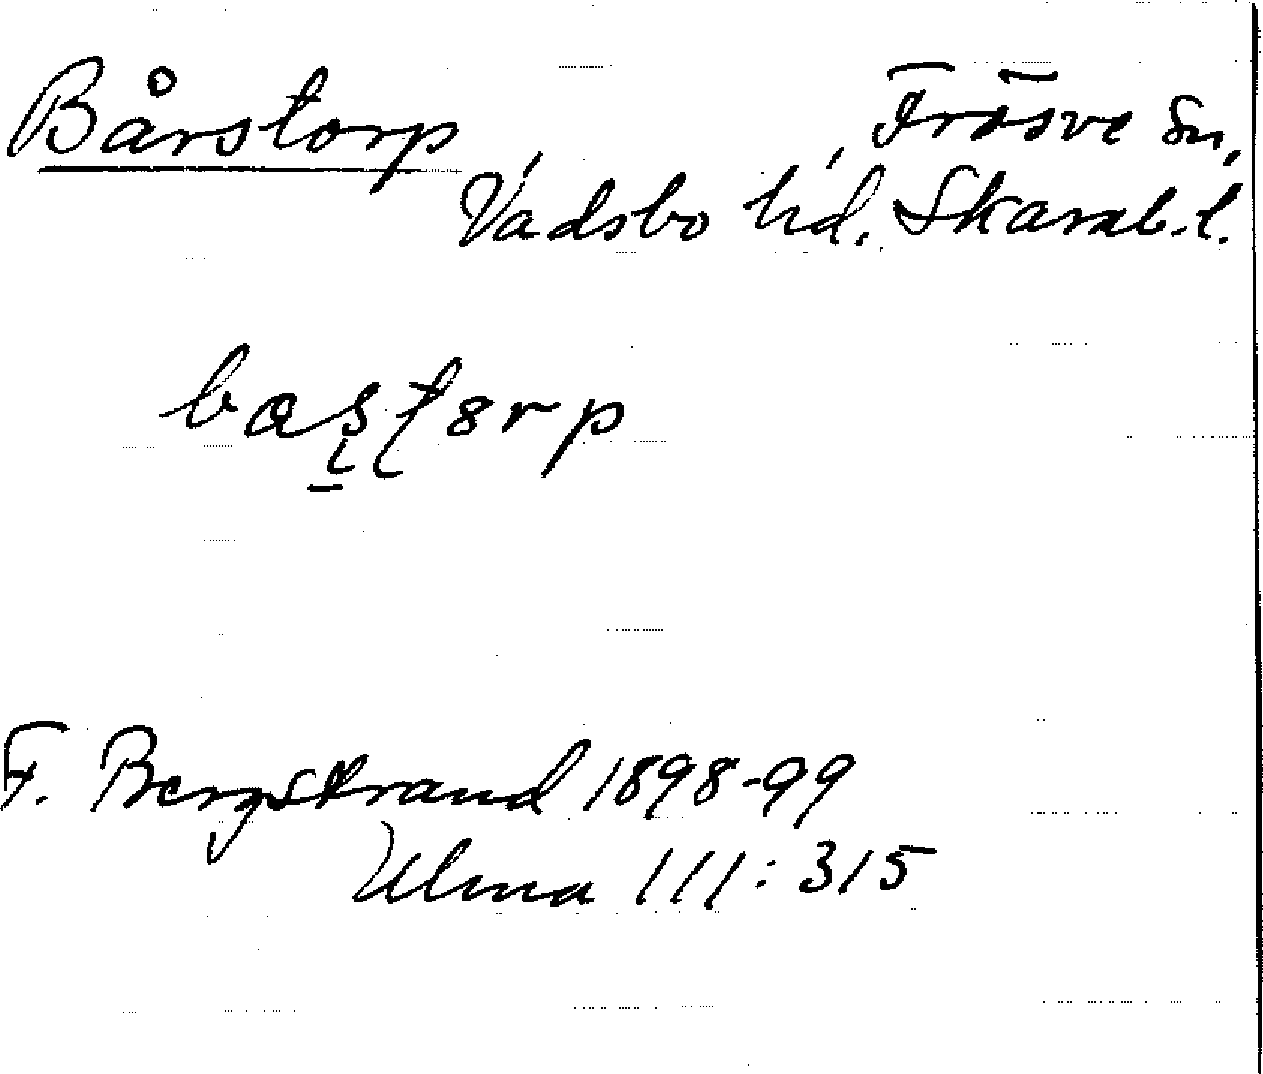 Bårstorp, Frösve sn,
Vadsbo hd. Skarab.l.
bɑʂʈɵrp
F. Bergstrand 1898-99
Ulma 111:315